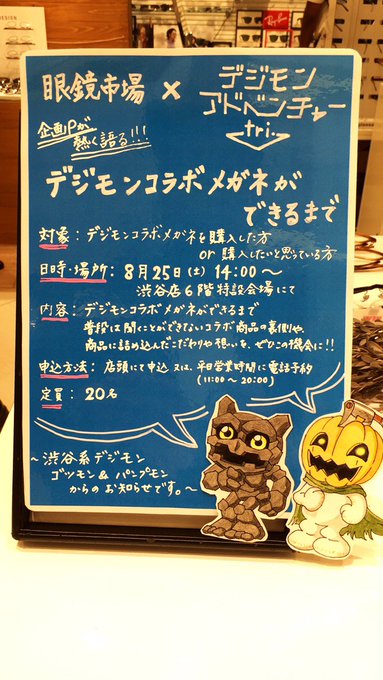 眼鏡市場 × デジモンアドベンチャー
tri.
企画Pが
熱く語る!!!
デジモンコラボメガネが
できるまで
対象：デジモンコラボメガネを購入した方
or 購入したいと思っている方
日時・場所：8月25日(土) 14:00〜
渋谷店6階特設会場にて
内容：デジモンコラボメガネができるまで
普段は聞くことができないコラボ商品の裏側や、
商品に詰め込んだこだわりや想いを、ぜひこの機会に!!
申込方法：店頭にて申込 又は、平日営業時間に電話予約
(11:00〜20:00)
定員：20名
〜渋谷系デジモン
ゴツモン&パンプモン
からのお知らせです。〜
Ray-Ban